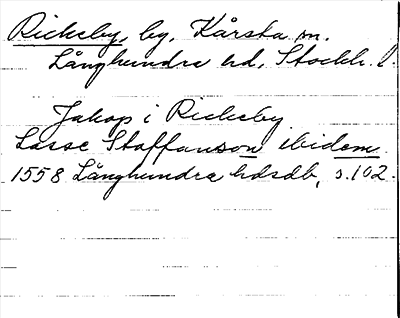 Rickeby, by, Kårsta sn.
Långhundra hd, Stockh. l.
Jakop i Rickeby
Lasse Staffansson ibidem.
1558 Långhundra hdsdb, s. 102.